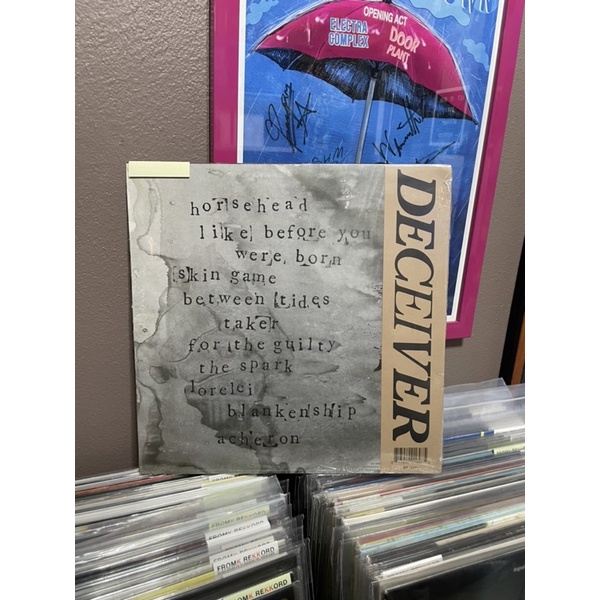 OPENING ACT
ELECTRA
COMPLEX
DOOR
PLANT
horsehead
like before you
were born
skin game
between tides
taker
for the guilty
the spark
lorelei
blankenship
acheron
DECEIVER
FROMK REKKORD
FROMK REKKORD